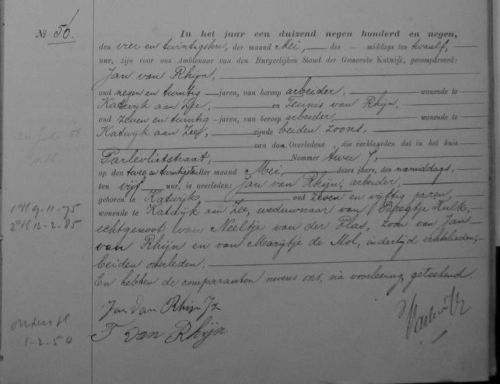 No 50.
In het jaar een duizend negen honderd en negen,
den vier en twintigsten, der maand Mei, des middags ten twaalf,
ure, zijn voor ons Ambtenaar van den Burgerlijken Stand der Gemeente Katwijk, gecompareerd:
Jan van Rhijn,
oud negen en twintig jaren, van beroep arbeider, wonende te
Katwijk aan Zee, en Teunis van Rhijn,
oud zeven en twintig jaren, van beroep arbeider, wonende te
Katwijk aan Zee, zijnde beiden zoons,
van den Overledene, die verklaarden dat in het huis
Parlevlietstraat, Nommer twee,
op den twee en twintigsten der maand Mei, dezes jaars, des namiddags,
ten vijf ure, is overleden: Jan van Rhijn, arbeider,
geboren te Katwijk, oud zeven en vijftig jaren,
wonende te Katwijk aan Zee, weduwnaar van Kulk,
echtgenoot van Neeltje van der Plas, zoon van Jan
van Rhijn en van Marijtje de Mol, indertijd echtelieden,
beiden overleden.
En hebben de comparanten nevens ons, na voorlezing, geteekend
Jan van Rhijn Jz
T van Rhijn
9-11-75
12-2-85
1-2-50